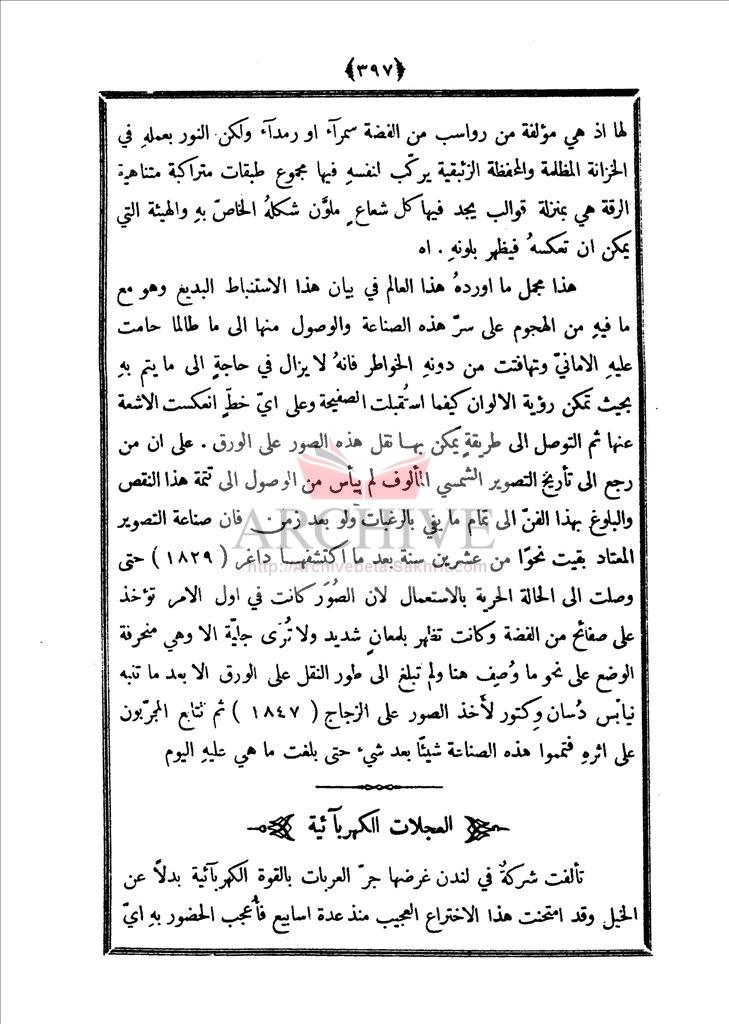 ﴿٣٩٧﴾
لها اذ هي مؤلفة من رواسب من الفضة سمرآء او رمدآء ولكن النور بعملهِ في
الخزانة المظلمة والمحفظة الزئبقية يركّب لنفسهِ فيها مجموع طبقات متراكبة متناهية
الرقة هي بمنزلة قوالب يجد فيها كل شعاع ملوَّن شكلهُ الخاصّ بهِ والهيئة التي
يمكن ان تعكسهُ فيظهر بلونهِ . اه
هذا مجمل ما اوردهُ هذا العالم في بيان هذا الاستنباط البديع وهو مع
ما فيهِ من الهجوم على سرّ هذه الصناعة والوصول منها الى ما طالما حامت
عليهِ الامانيّ وتهافتت من دونهِ الخواطر فانهُ لا يزال في حاجةٍ الى ما يتم بهِ
بحيث تمكن رؤية الالوان كيفما استُقبلت الصفيحة وعلى ايّ خطٍّ انعكست الاشعة
عنها ثم التوصل الى طريقةٍ يمكن بها نقل هذه الصور على الورق . على ان من
رجع الى تأريخ التصوير الشمسي المألوف لم ييأس من الوصول الى تتمة هذا النقص
والبلوغ بهذا الفنّ الى تمام ما يفي بالرغبات ولو بعد زمن فان صناعة التصوير
المعتاد بقيت نحوًا من عشرين سنة بعد ما اكتشفها داغر ( ١٨٢٩ ) حتى
وصلت الى الحالة الحرية بالاستعمال لان الصُوَر كانت في اول الامر تؤخذ
على صفائح من الفضة وكانت تظهر بلمعانٍ شديد ولا تُرَى جليّة الا وهي منحرفة
الوضع على نحو ما وُصِف هنا ولم تبلغ الى طور النقل على الورق الا بعد ما تنبه
نيابْس دُسان وِكتور لأخذ الصور على الزجاج ( ١٨٤٧ ) ثم تتابع المجرّبون
على اثرهِ فتمموا هذه الصناعة شيئًا بعد شيء حتى بلغت ما هي عليهِ اليوم
العجلات الكهربآئية
تألفت شركةٌ في لندن غرضها جرّ العربات بالقوة الكهربآئية بدلاً عن
الخيل وقد امتحنت هذا الاختراع العجيب منذ عدة اسابيع فأُعجب الحضور بهِ ايّ
ARCHIVE
http://Archivebeta.Sakhrit.com